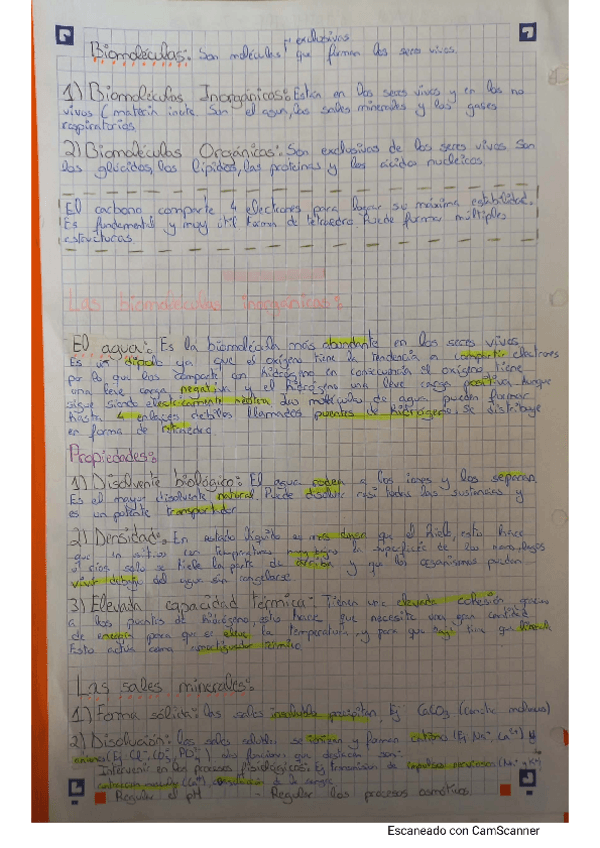 exclusivas
Biomoléculas: Son moléculas que forman los seres vivos.
1) Biomoléculas Inorgánicas: Están en los seres vivos y en los no
vivos (materia inerte. Son el agua, las sales minerales y los gases
respiratorios
2) Biomoléculas Orgánicas: Son exclusivas de los seres vivos. Son
los glúcidos, los lípidos, las proteínas y los ácidos nucleicos.
El carbono comparte 4 electrones para lograr su máxima estabilidad.
Es fundamental y muy útil forma de tetraedro. Puede formar múltiples
estructuras
Las biomoléculas inorgánicas:
El agua: Es la biomolécula más abundante en los seres vivos.
Es un dipolo ya que el oxígeno tiene la tendencia a compartir electrones
por lo que los comparte con hidrógeno en consecuencia el oxígeno tiene
una leve carga negativa y el hidrógeno una leve carga positiva. Aunque
sigue siendo electricamente neutra. Las moléculas de agua pueden formar
hasta 4 enlaces débiles llamados puentes de hidrógeno. Se distribuye
en forma de tetraedro.
Propiedades:
1) Disolvente biológico: El agua rodea a los iones y los separan.
Es el mayor disolvente natural. Puede disolver casi todas las sustancias y
es un potente transportador
2) Densidad: En estado líquido es más denso que el hielo, esto hace
que en sitios con temperaturas muy bajas la superficie de los mares, lagos
o ríos solo se hiele la parte de arriba y que los organismos puedan
vivir debajo del agua sin congelarse.
3) Elevada capacidad térmica: Tienen una elevada cohesión gracias
a los puentes de hidrógeno, esto hace que necesite una gran cantidad
de energía para que se eleve la temperatura, y para que baje tiene que
Esto actúa como amortiguador térmico
Las sales minerales:
1) Forma sólida: las sales insolubles precipitan. Ej CaCO3 (concha moluscos)
2) Disolución: las sales solubles se ionizan y forman cationes (Ej Na+, Ca2+) y
aniones (Ej Cl-, CO3, PO4) sus funciones que destacan son:
Intervenir en los procesos fisiológicos: Ej transmisión de impulsos nerviosos (Na+ y K+)
contracción muscular (Ca2+), coagulación de la sangre
- Regular el pH - Regular los procesos osmóticos.
Escaneado con CamScanner